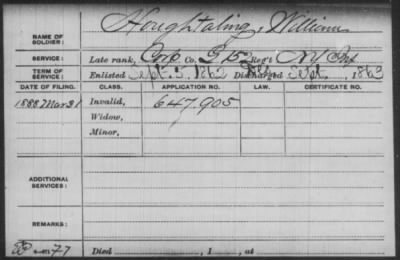 NAME OF SOLDIER: Houghtaling, William
SERVICE: Late rank, Corp Co. G, 152 Reg't N.Y. Inf
TERM OF SERVICE: Enlisted Sept. 5, 1862 Discharged Sept. , 1863
DATE OF FILING. CLASS. APPLICATION NO. LAW. CERTIFICATE NO.
1888 Mar 31 Invalid, 647,905
Widow,
Minor,
ADDITIONAL SERVICES:
REMARKS:
77 Died , 1 , at